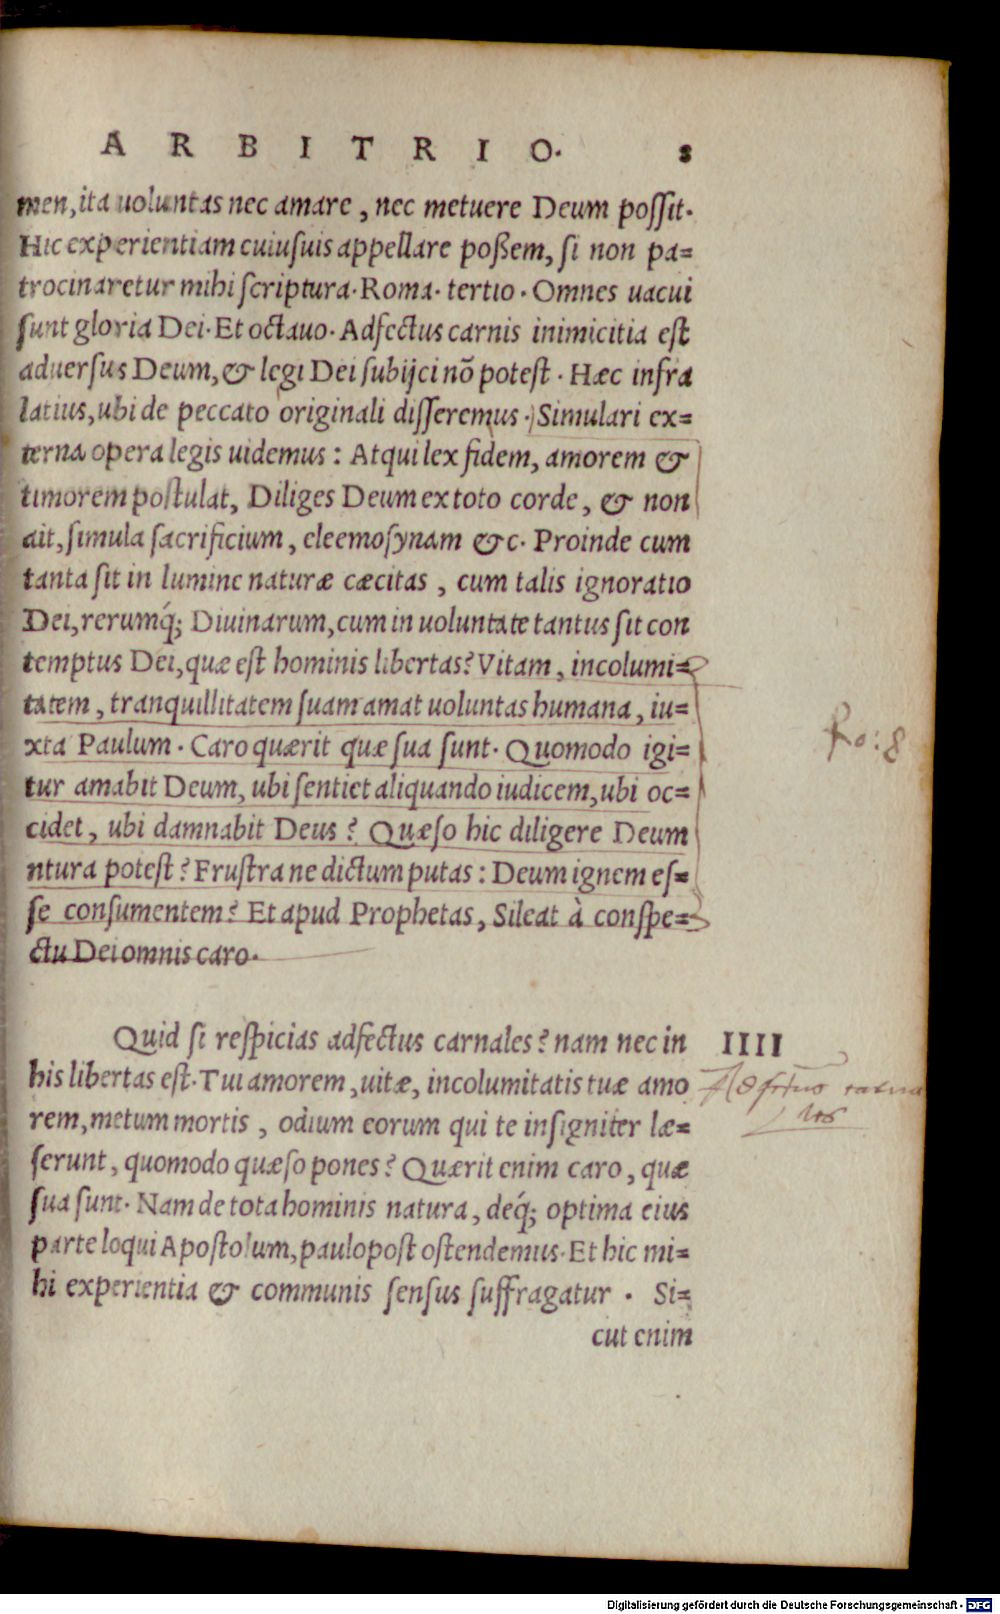 ARBITRIO. 8
men, ita uoluntas nec amare, nec metuere Deum poſſit.
Hic experientiam cuiuſuis appellare poßem, ſi non pa=
trocinaretur mihi ſcriptura. Roma. tertio. Omnes uacui
ſunt gloria Dei. Et octauo. Adfectus carnis inimicitia eſt
aduerſus Deum, & legi Dei ſubijci nõ poteſt. Hæc infra
latius, ubi de peccato originali diſſeremus. Simulari ex=
terna opera legis uidemus: Atqui lex fidem, amorem &
timorem poſtulat, Diliges Deum ex toto corde, & non
ait, ſimula ſacrificium, eleemoſynam &c. Proinde cum
tanta ſit in lumine naturæ cæcitas, cum talis ignoratio
Dei, rerumq́; Diuinarum, cum in uoluntate tantus ſit con
temptus Dei, quæ eſt hominis libertas? Vitam, incolumi=
tatem, tranquillitatem ſuam amat uoluntas humana, iu=
xta Paulum. Caro quærit quæ ſua ſunt. Quomodo igi=
tur amabit Deum, ubi ſentiet aliquando iudicem, ubi oc=
cidet, ubi damnabit Deus? Quæſo hic diligere Deum
ntura poteſt? Fruſtra ne dictum putas: Deum ignem eſ=
ſe conſumentem? Et apud Prophetas, Sileat à conſpe=
ctu Dei omnis caro.
Ro: 8
Quid ſi reſpicias adfectus carnales? nam nec in
IIII
his libertas eſt. Tui amorem, uitæ, incolumitatis tuæ amo
rem, metum mortis, odium eorum qui te inſigniter læ=
ſerunt, quomodo quæſo pones? Quærit enim caro, quæ
ſua ſunt. Nam de tota hominis natura, deq́; optima eius
parte loqui Apoſtolum, paulopoſt oſtendemus. Et hic mi=
hi experientia & communis ſenſus ſuffragatur. Si=
cut enim
Digitalisierung gefördert durch die Deutsche Forschungsgemeinschaft - DFG